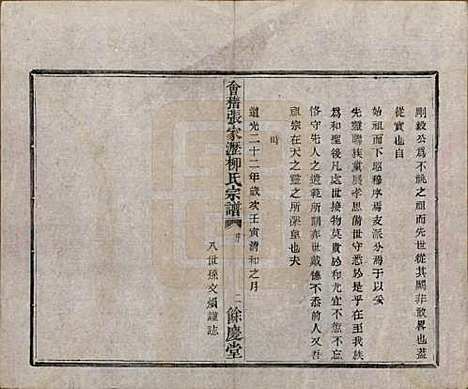 剛毅公為不祧之祖而先世從其闕非敢畧也蓋
從實也自
始祖而下昭穆序焉支派分焉于以妥
先靈聯族黨展孝思衛世守悉於是乎
為和聖後凡處世接物莫貴於和尤宜不忘不忘
恪守先人之遺範所關奕世戴德不忝前人又吾
祖宗在天之靈之所深皇也夫
時
道光二十二年歲次壬寅清和之月
會稽張家瀝柳氏宗譜
二
餘慶堂
八世孫文 謹誌